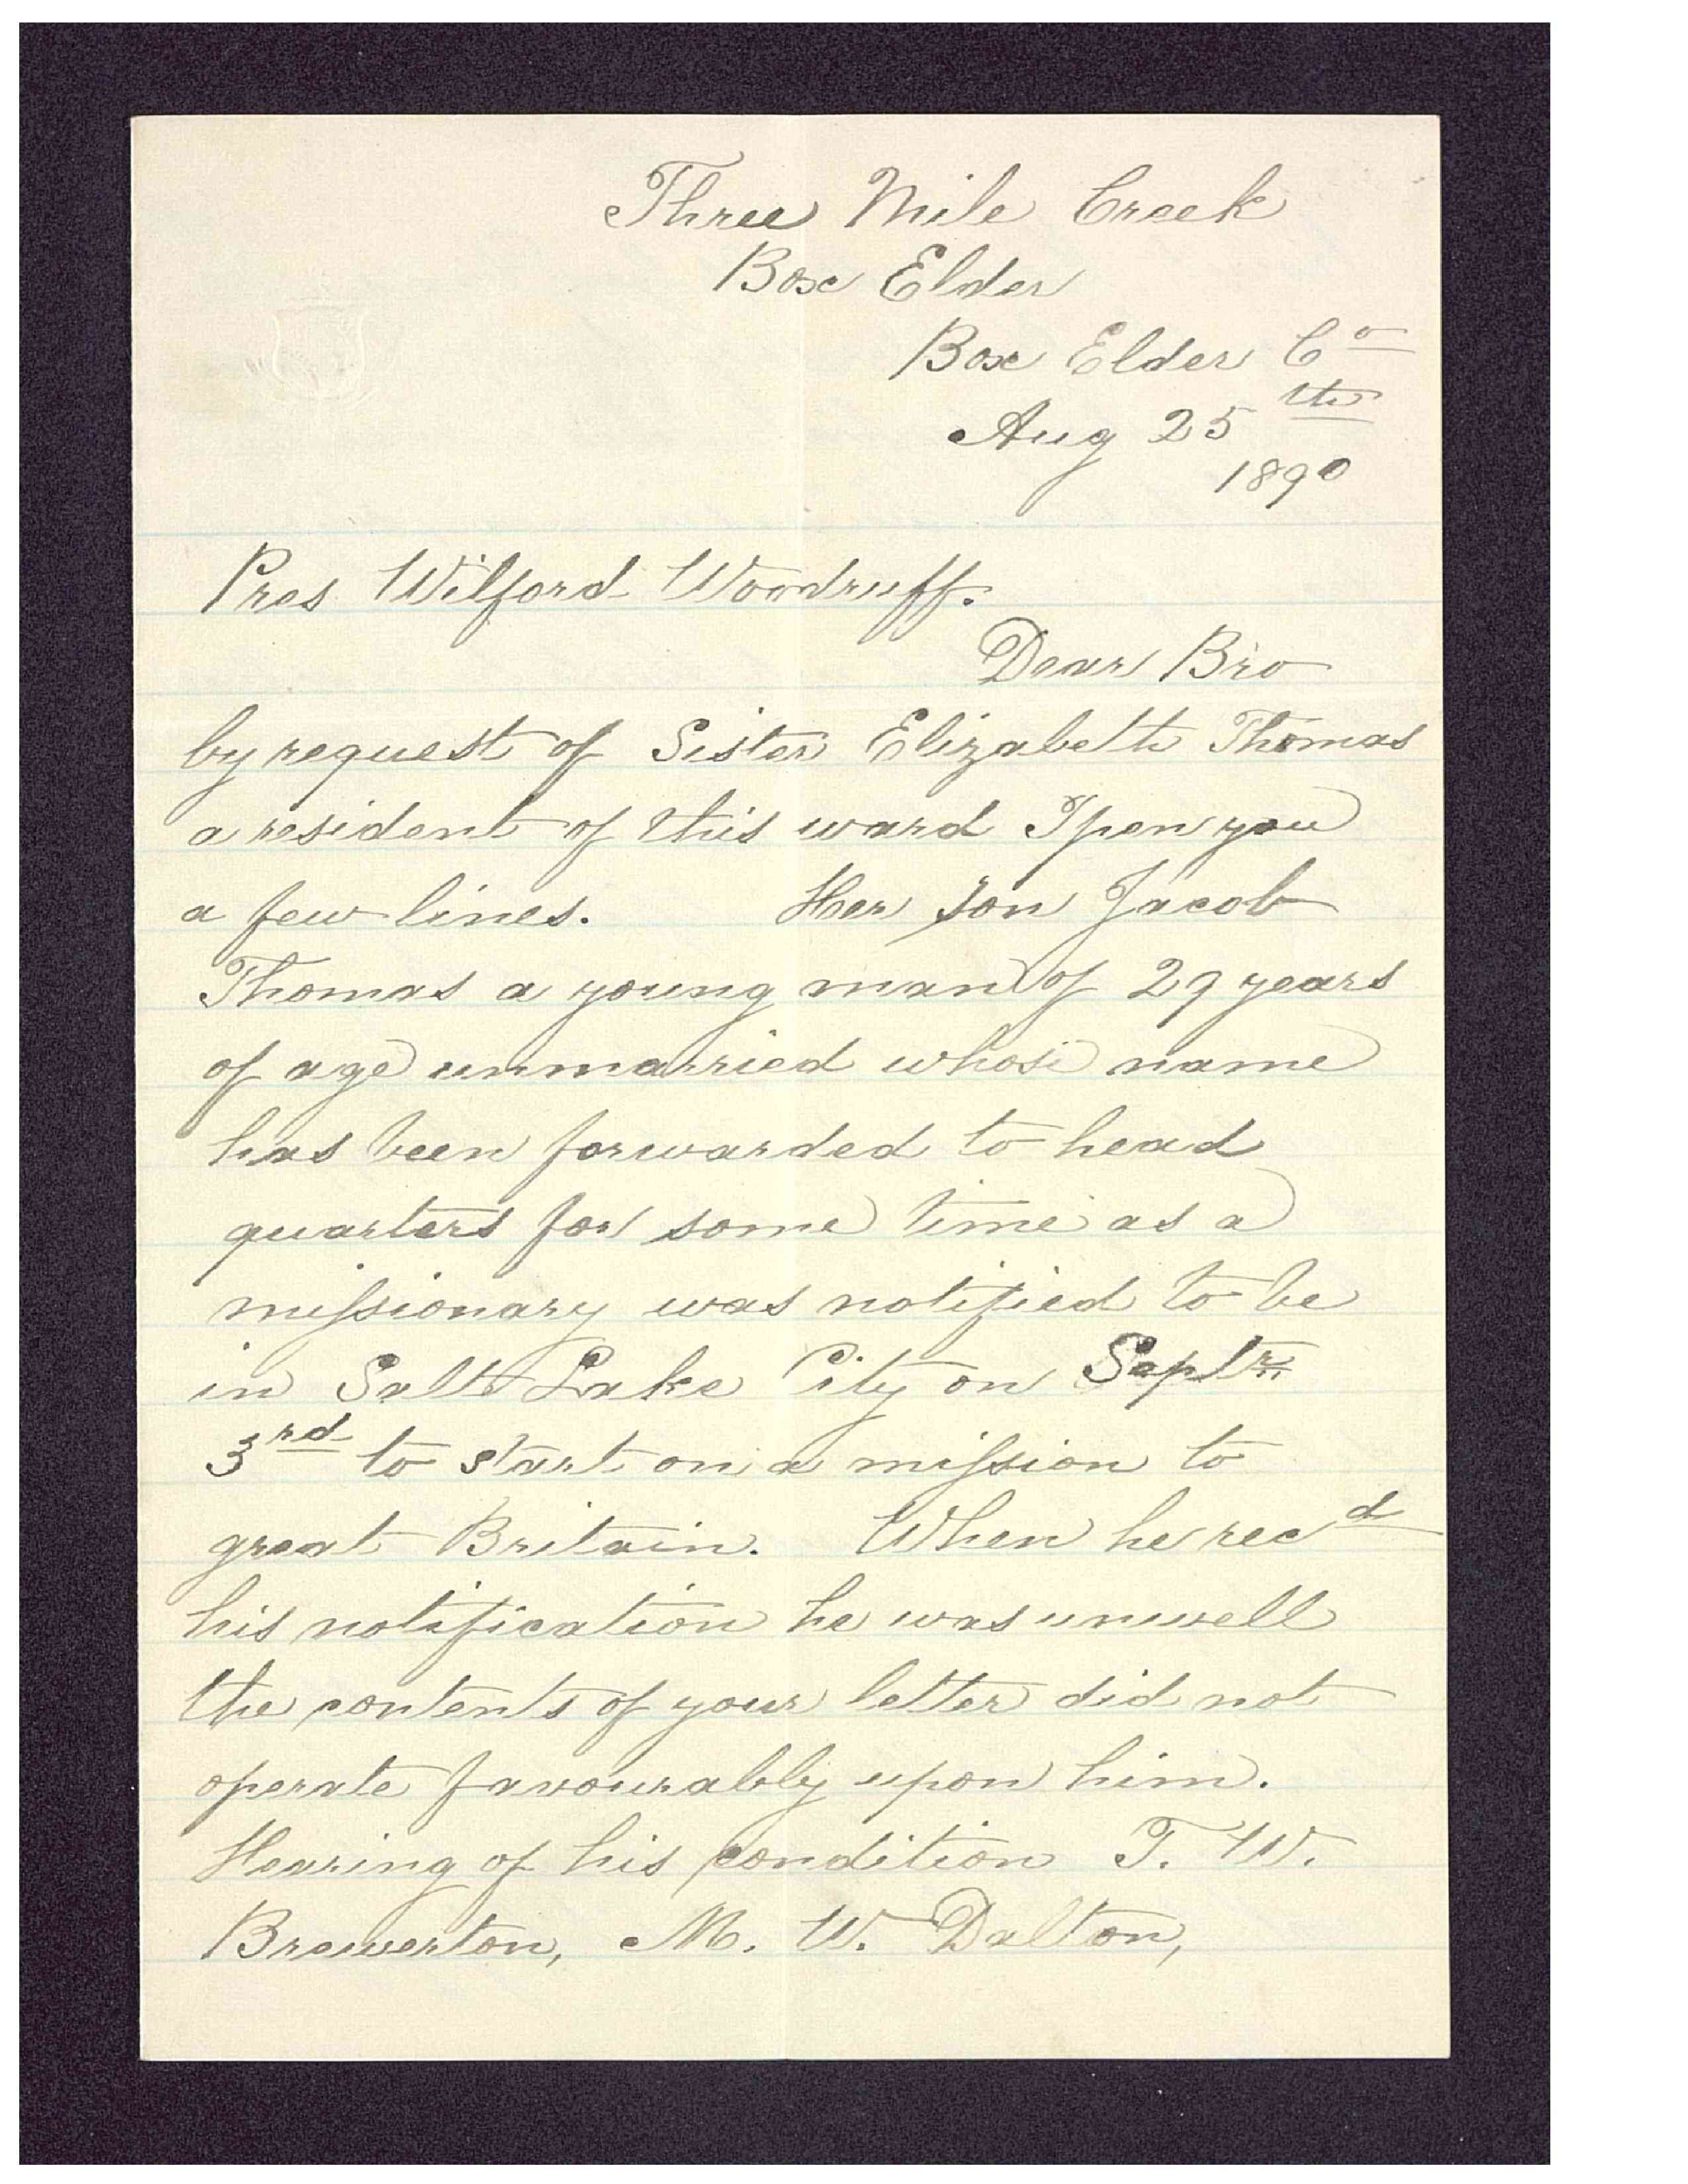 Three Mile Creek
Box Elder
Box Elder Co
Aug 25th
1890
Pres Wilford Woodruff.
Dear Bro
by request of Sister Elizabeth Thomas
a resident of this ward I pen you
a few lines. Her son Jacob
Thomas a young man of 29 years
of age unmarried whose name
has been forwarded to head
quarters for some time as a
missionary was notified to be
in Salt Lake City on Septr
3rd to start on a mission to
great Britain. When he recd
his notification he was unwell
the contents of your letter did not
operate favourably upon him.
Hearing of his condition T. W.
Brewerton, M. W. Dalton,